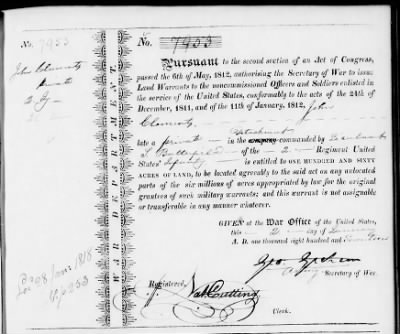 No. 7953
John Clements
private
2 Iy
WAR DEPARTMENT
No. 7953
Pursuant to the second section of an Act of Congress,
passed the 6th of May, 1812, authorising the Secretary of War to issue
Land Warrants to the noncommissioned Officers and Soldiers enlisted in
the service of the United States, conformably to the acts of the 24th of
December, 1811, and of the 11th of January, 1812, John
Clements
Detachment
late a private in the company commanded by Lieutenant
Butterfield of the 2 Regiment United
States' Infantry is entitled to ONE HUNDRED AND SIXTY
ACRES OF LAND, to be located agreeably to the said act on any unlocated
parts of the six millions of acres appropriated by law for the original
grantees of such military warrants; and this warrant is not assignable
or transferable in any manner whatever.
GIVEN at the War Office of the United States,
this 2 day of
A. D. one thousand eight hundred and
Geo Graham
Acting Secretary of War.
Registered,
Clerk.
1818